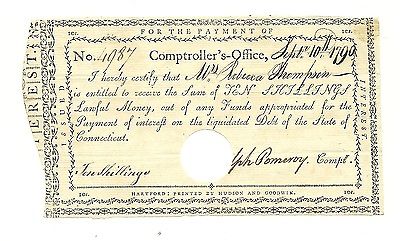 FOR THE PAYMENT OF
10s. 10s.
No. 4987 Comptroller's-Office, Septr. 10th 1790
I hereby certify that Mrs. Rebecca Thompson
is entitled to receive the Sum of TEN SHILLINGS
Lawful Money, out of any Funds appropriated for the
Payment of interest on the liquidated Debt of the State of
Connecticut.
Ten Shillings Ph Pomeroy Compt.
10s. 10s.
HARTFORD: PRINTED BY HUDSON AND GOODWIN.
INTEREST
INTEREST
EREST.